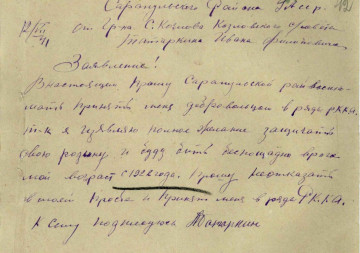 Сарапульского Района УАССР. 191
от Гр-на С. Козлово Козловского с/совета
Татаркина Ивана
Заявление!
В настоящим Прошу Сарапульской рай военко-
мать Принять меня добровольцем в ряды РККА.
т.к я изъявляю полное желание защищать
свою родину и буду бить беспощадно врага
мой возраст с 1922 года. Прошу неотказать
в моей Прозбе и Принять меня в ряды Р.К.К.А.
К сему Подписуюсь Татаркин